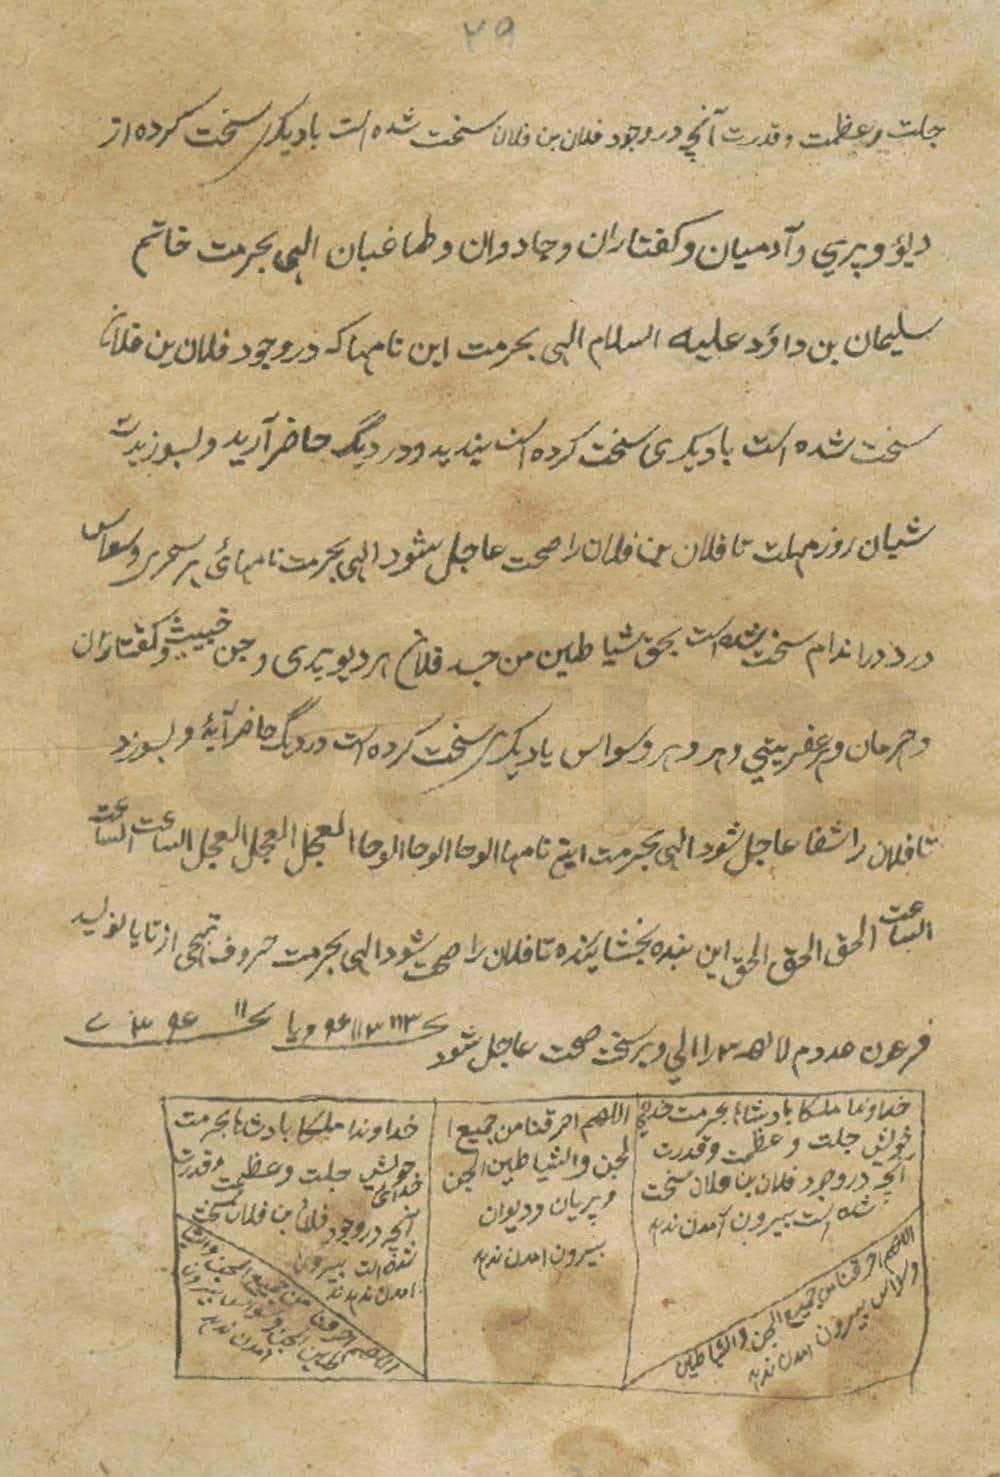 ٢٩
جلت و عظمت و قدرت آنچه در وجود فلان بن فلان سخت شده است با دیکری سخت کرده از
دیؤ و پری و آدمیان و کفتاران و جادوان و طاغیان الهی بحرمت خاتم
سلیمان بن داؤد علیه السلام الهی بحرمت این نامها که در وجود فلان بن فلان
سخت شده است با دیکری سخت کرده است و در دیگ حاضر آرید و بسوزید
شیان روز مهلت تا فلان بن فلان را صحت عاجل شود الهی بحرمت نامهائ هر سحری وسواس
درد در اندام سخت شده است بحق شیاطین من جسد فلان هر دیو پری و جن خبیث و کفتاران
و هر وسواس با دیکری سخت کرده است در دیگ حاضر آید و بسوزد
تا فلان را شفا عاجل شود الهی بحرمت این نامها الوحا الوحا الوحا العجل العجل العجل الساعت الساعت
الساعت الحق الحق الحق این بنده بخشاینده تا فلان را صحت شود الهی بحرمت حروف تهجی از تا یا
فرعون صحت عاجل شود
خداوندا ملکا بادشاها بحرمت خدائی
خویش جلت و عظمت و قدرت
آنچه در وجود فلان بن فلان سخت
شده است بیرون آمدن ندهد
اللهم احرقنا من جمیع الجن و الشیاطین
وسواس بیرون امدن ندهد
اللهم احرقنا من جمیع ا
لجن والشیاطین الجن
و پریان و دیوان
بیرون امدن ندهد
خداوندا ملکا بادشاها بحرمت
خدائی خویش جلت و عظمت و قدرت
آنچه در وجود فلان بن فلان سخت
شده است بیرون
امدن ندهد
اللهم احرقنا من جمیع الجن والشیا
طین الجن وسواس بیرون
امدن ندهد